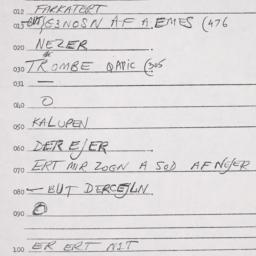 012 FARKATERT
013 BUT/G3NOSN AF A EMES (476
020 NEZER
030 TROMBE QAVIC (305
031 —
O
050 KALUPEN
060 DER EJER
ERT MIR ZOGN A SOD AF NEJER
070
080 — BUT DERCEJLN
090 O
100 ER ERT NIT